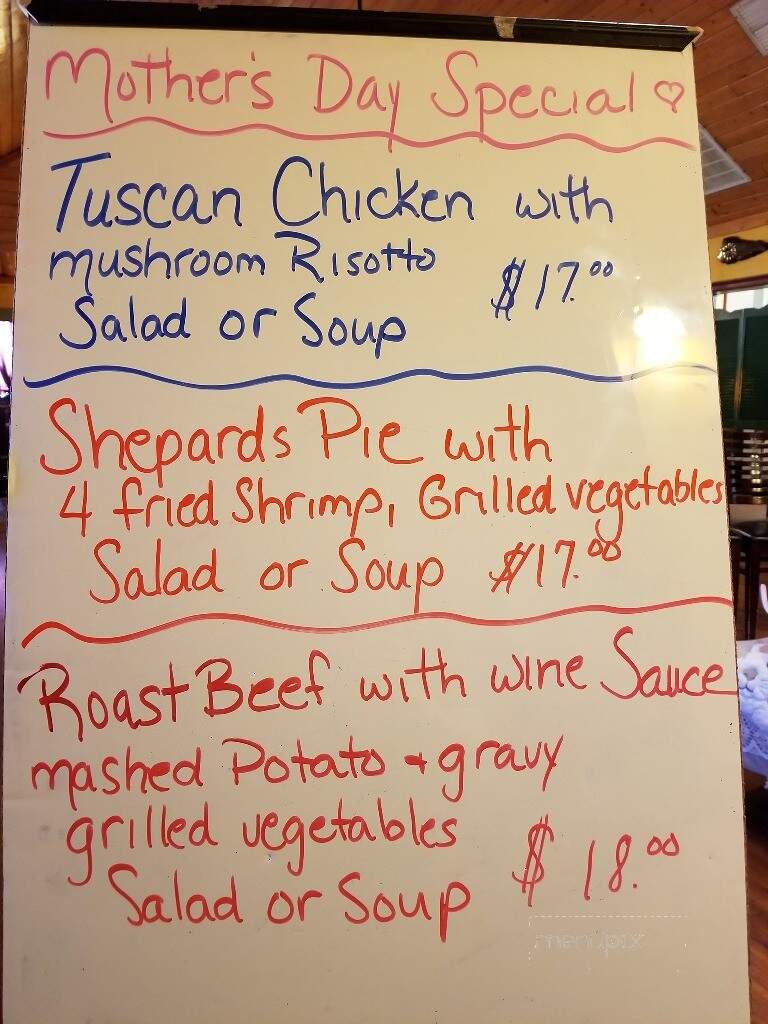 Mother's Day Special ♡
Tuscan Chicken with
mushroom Risotto
$17.00
Salad or Soup
Shepards Pie with
4 fried Shrimp, Grilled vegetables
Salad or Soup $17.00
Roast Beef with wine Sauce
mashed Potato + gravy
grilled vegetables
$18.00
Salad or Soup
menupix